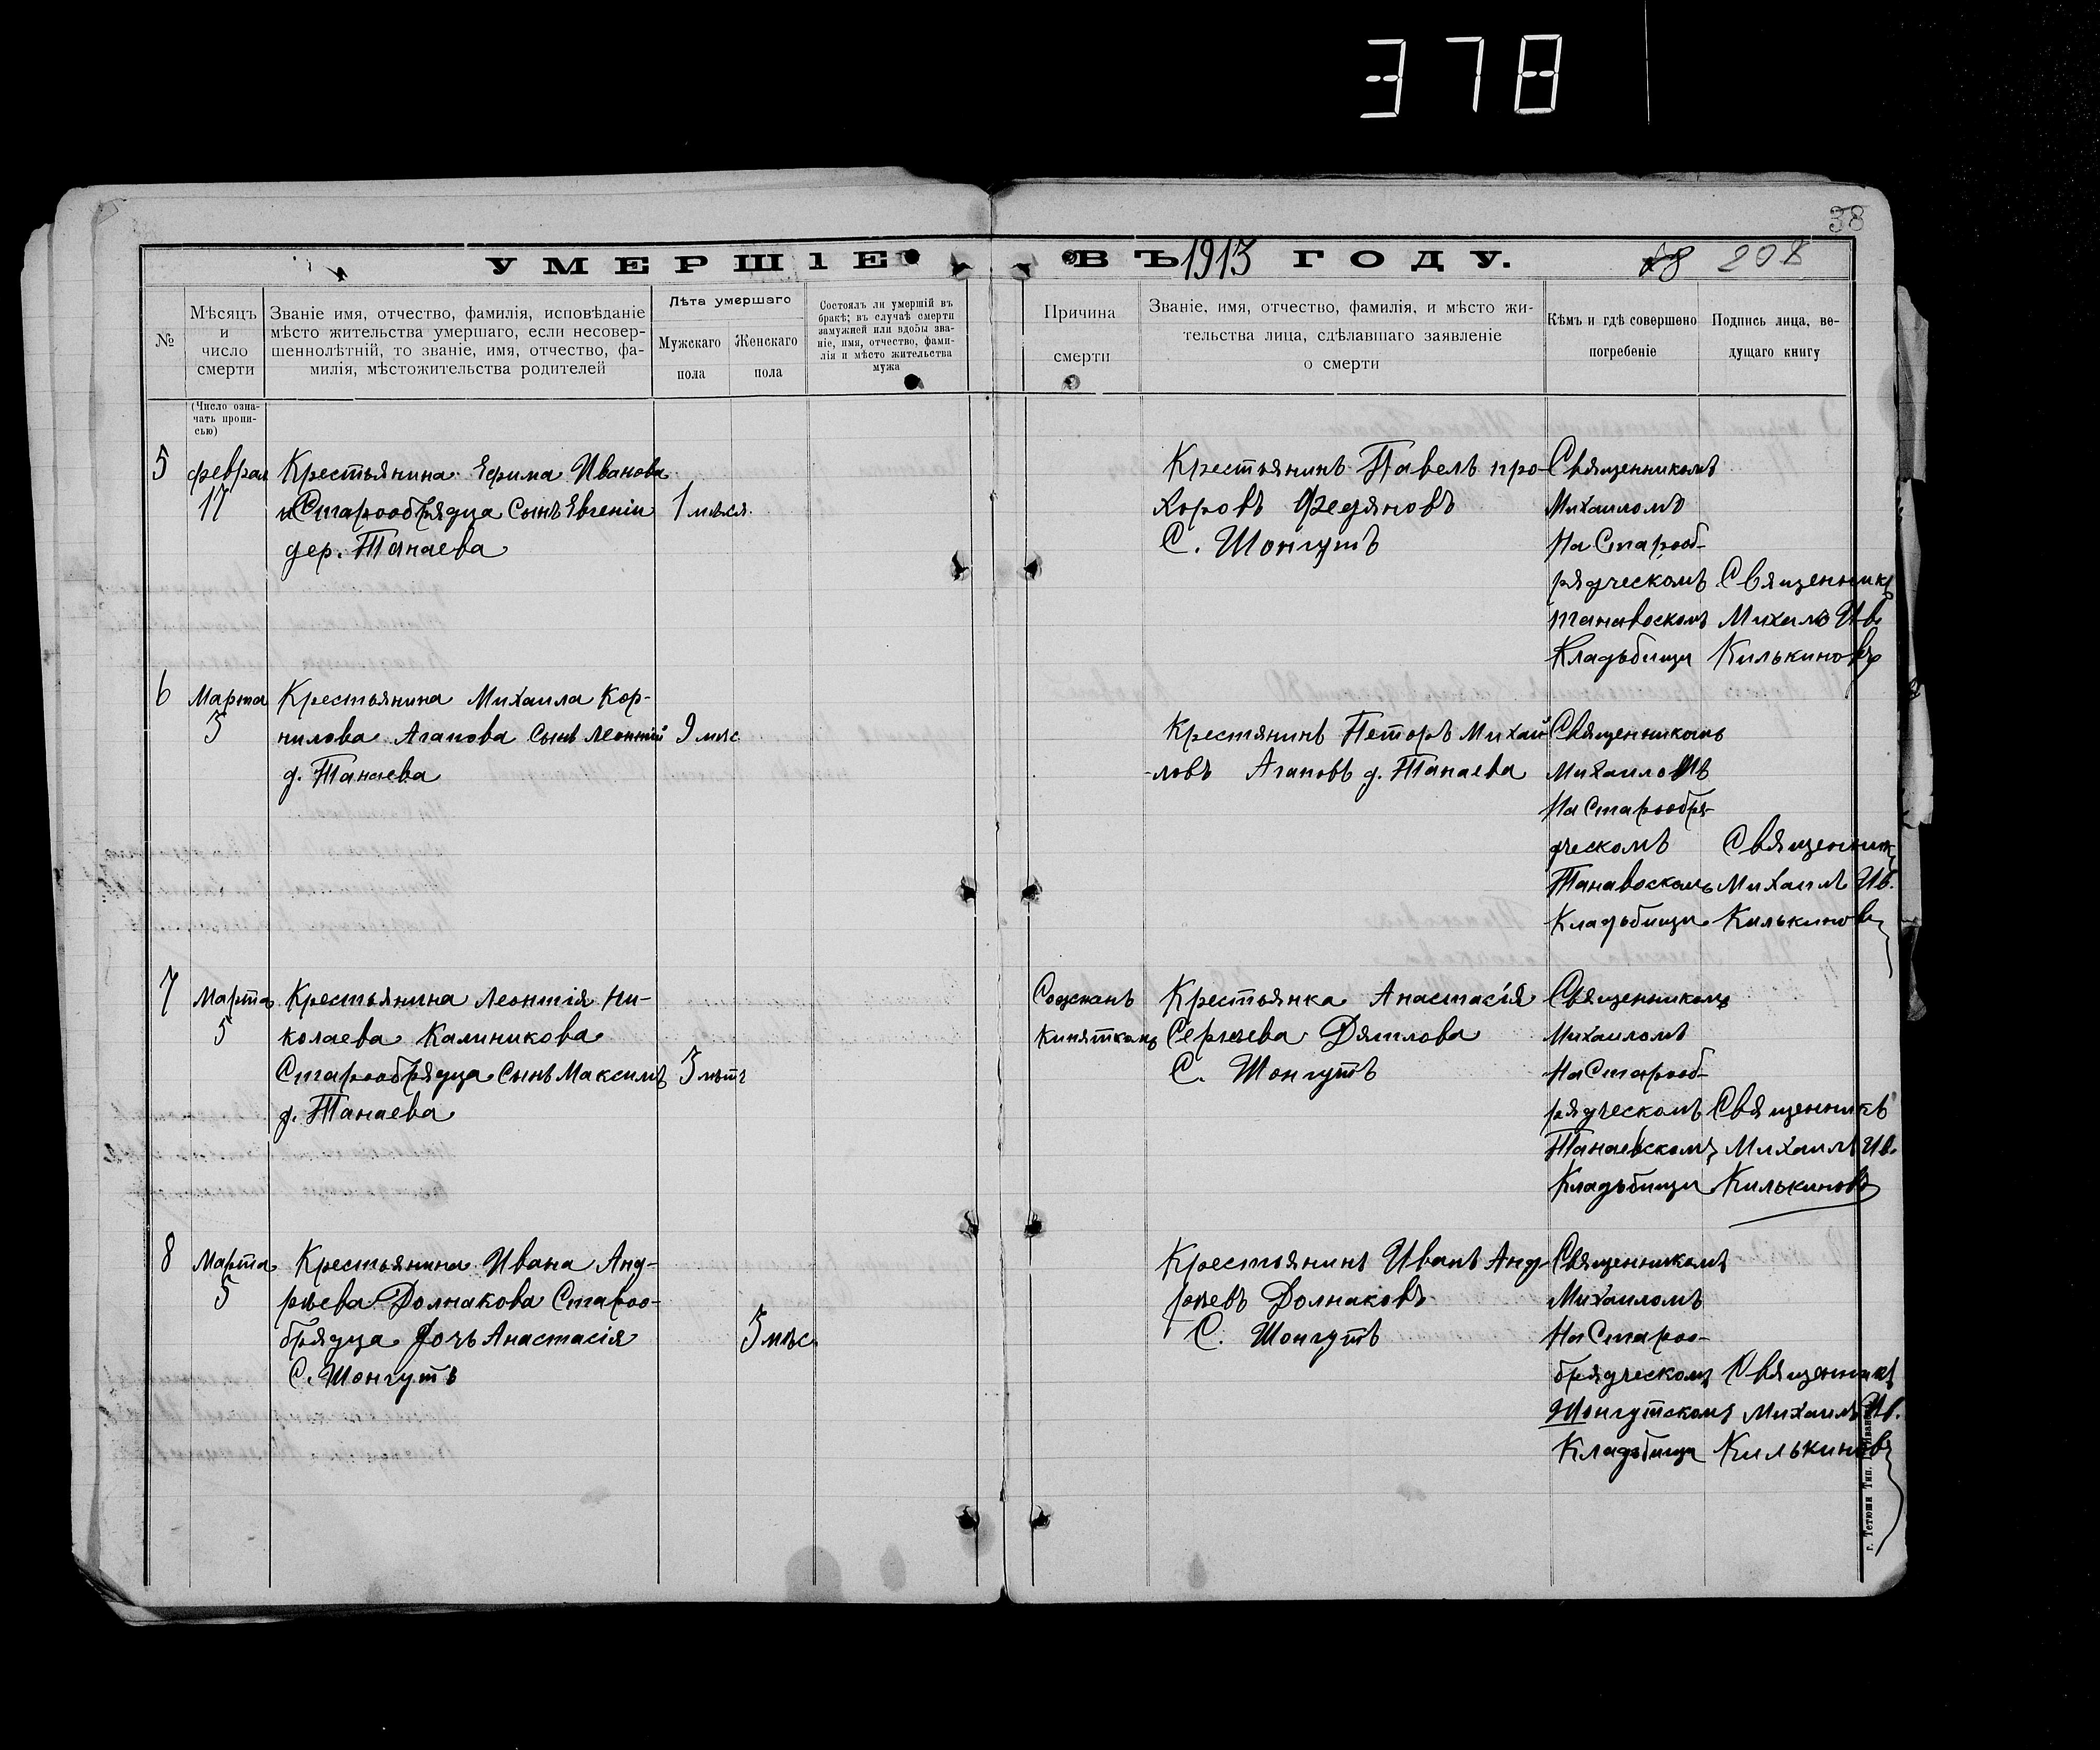 378
38
УМЕРШІЕ ВЪ 1913 ГОДУ.
18 208
№
Мѣсяцъ
и
число
смерти
Званіе имя, отчество, фамилія, исповѣданіе
мѣсто жительства умершаго, если несовер-
шеннолѣтній, то званіе, имя, отчество, фа-
милія, мѣстожительства родителей
Лѣта умершаго
Мужскаго
пола
Женскаго
пола
Состоялъ ли умершій въ
бракѣ; въ случаѣ смерти
замужней или вдовы зва-
ніе, имя, отчество, фами-
лія и мѣсто жительства
мужа
Причина
смерти
Званіе, имя, отчество, фамилія, и мѣсто жи-
тельства лица, сдѣлавшаго заявленіе
о смерти
Кѣмъ и гдѣ совершено
погребеніе
Подпись лица, ве-
дущаго книгу
(Число озна-
чать пропи-
сью)
5
феврал
17
Крестьянина Ефима Иванова
Старообрядца Сынъ Евгеніи
дер. Танаева
1 мѣся
Крестьянинъ Павелъ про-
хоровъ Федяновъ
С. Шонгутъ
Священникомъ
Михаиломъ
На Старооб-
рядческомъ
танавоскомъ
Кладьбищи
Священникъ
Михаилъ Ив.
Килькиновъ
6
Марта
5
Крестьянина Михаила Кор-
нилова Агапова Сынъ Леонтій
д. Танаева
9 мѣс
Крестянинъ Петоръ Михай
-ловъ Агаповъ д. Танаева
Священникомъ
Михаиломъ
На Старообря-
дческомъ
Танавоскомъ
Кладьбищи
Священникъ
Михаилъ Ив.
Килькиновъ
7
Марта
5
Крестьянина Леонтія Ни-
колаева Калиникова
Старообрядца Сынъ Максимъ
д. Танаева
5 лѣтъ
кипяткомъ
Крестьянка Анастасія
Сергѣева Дямлова
С. Шонгутъ
Священникомъ
Михаиломъ
На Старооб-
рядческомъ
Танаевскомъ
Кладьбищи
Священникъ
Михаилъ Ив.
Килькиновъ
8
Марта
5
Крестьянина Ивана Анд-
рѣева Долнакова Старо-
обрядца Дочь Анастасія
С. Шонгутъ
5 мѣс.
Крестоянинъ Иванъ Анд-
рѣевъ Долнаковъ
С. Шонгутъ
Священникомъ
Михаиломъ
На Староо-
брядческомъ
Шонгутскомъ
Кладьбища
Священникъ
Михаилъ Ив.
Килькиновъ
г. Тетюши Тип.